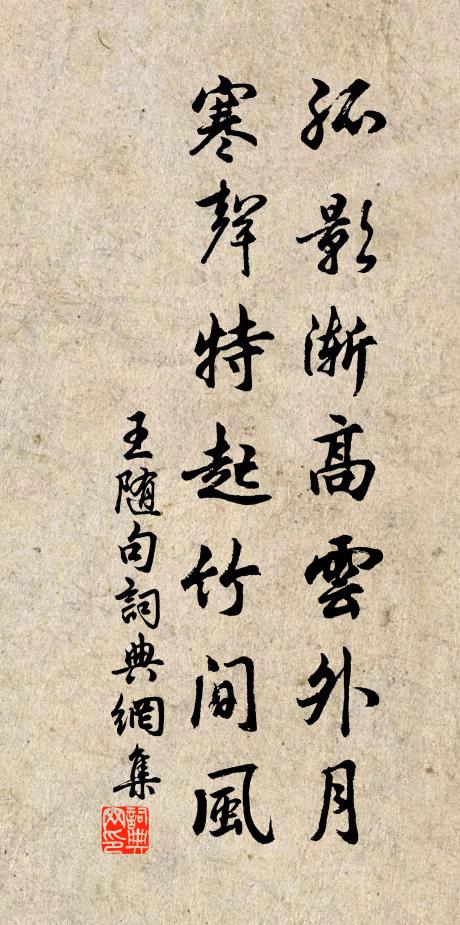 孤影漸高雲外月
寒聲特起竹間風
王随句詞典網集
詞典网印